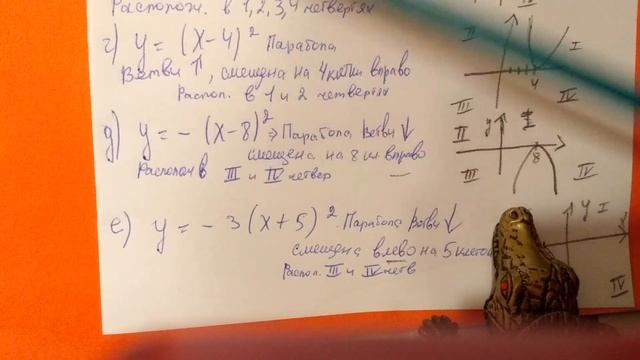 Располож. в 1,2,3,4 четвертях
г) y = (x-4)² Парабола
Ветви ↑, смещена на 4 клетки вправо
Распол. в 1 и 2 четвертях
д) y = - (x-8)² ⇒ Парабола Ветви ↓
смещена на 8 кл вправо
Располож в III и IV четвер
е) y = - 3(x+5)² Парабола Ветви ↓
смещена влево на 5 клеток
Распол. III и IV четв
II
I
4
III
IV
II
y
I
8
III
IV
y
I
IV